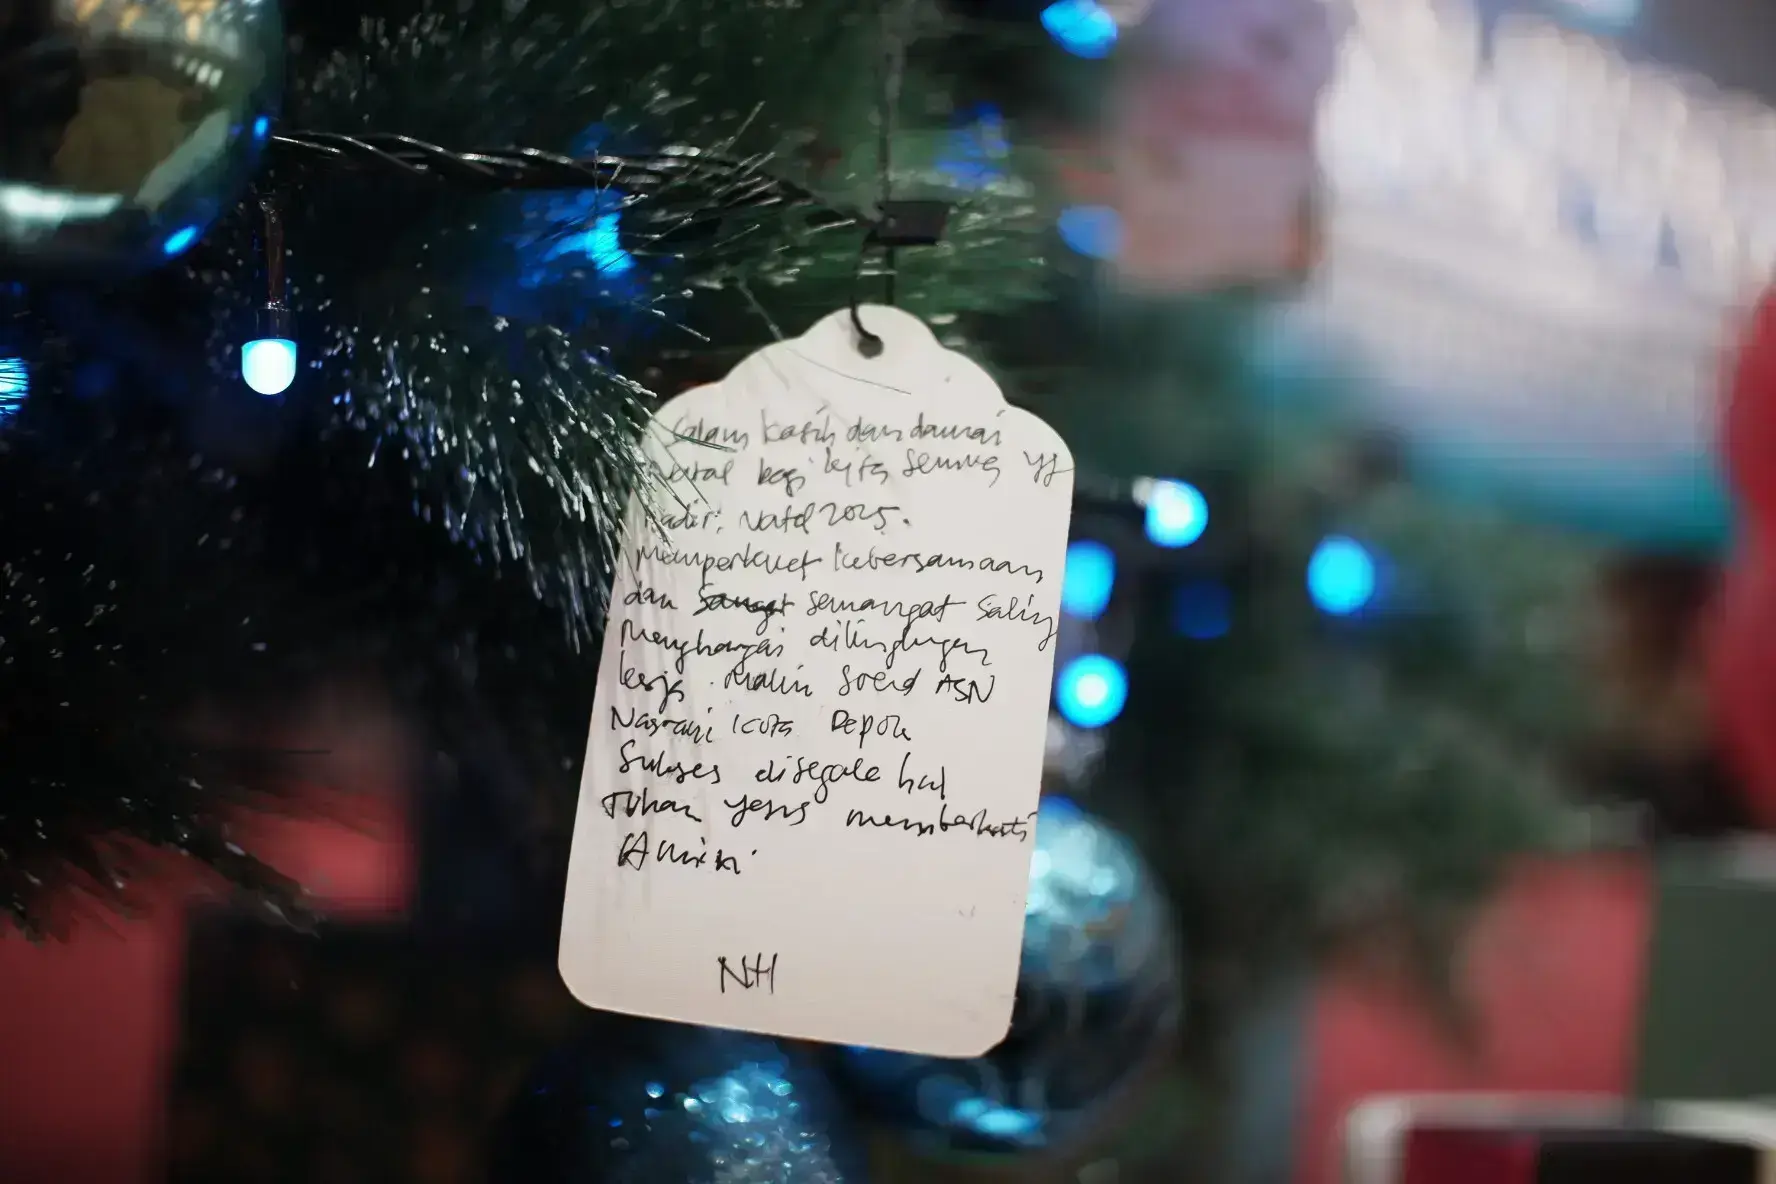 Salam kasih dan damai
Natal bagi kita semua yg
hadir, Natal 2025.
Memperkuat kebersamaan
dan semangat saling
Menghargai dilingkungan
kerja. Makin Soerd ASN
Nasrani Kota Depok
Sukses disegale hal
Tuhan Yesus memberkati
Amin
NH